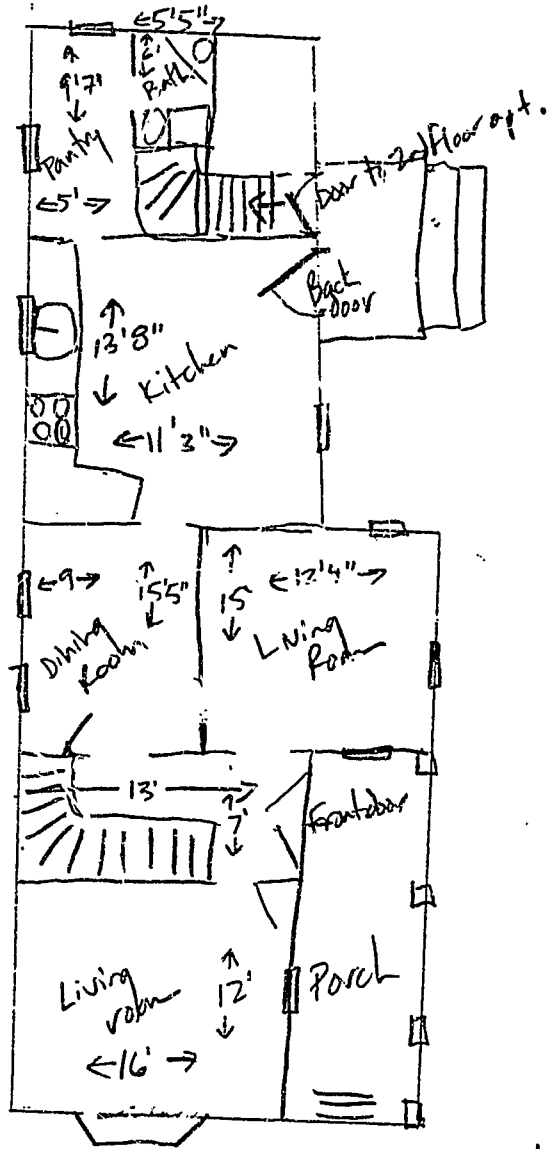 5'5"
6'
Bath
9'7"
Pantry
5'
Door to 2nd floor apt.
Back
Door
13'8"
Kitchen
11'3"
9
15'5"
15
12'4"
Dining
Room
Living
Room
13'
7'
Frontdoor
Living
room
12'
Porch
16'